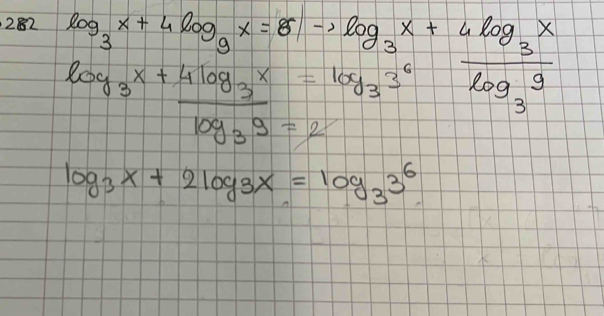 282 log₃ x + 4 log₉ x = 6 | → log₃ x + (4 log₃ x)/(log₃ 9)
log₃ x + (4 log₃ x)/(log₃ 9 = 2) = log₃ 3⁶
log₃ x + 2 log₃ x = log₃ 3⁶